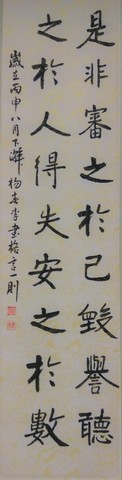 是非審之於己毀譽聽
之於人得失安之於數
歲在丙申八月下澣杨春李書格言一則